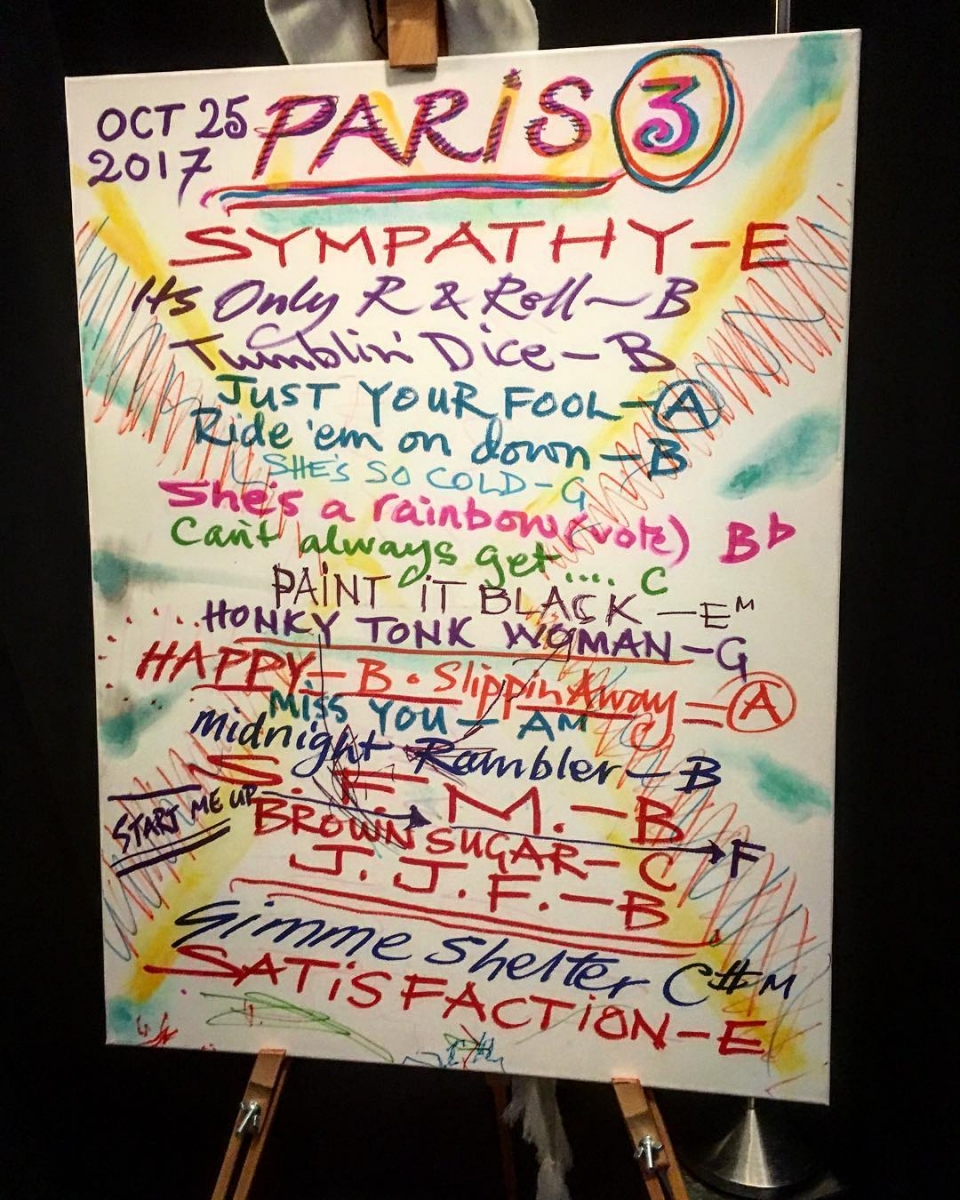 OCT 25 PARIS 3
2017
SYMPATHY-E
Its Only R & Roll - B
Tumblin' Dice - B
JUST YOUR FOOL - A
Ride 'em on down - B
SHE'S SO COLD - G
She's a rainbow (vote) Bb
Can't always get .... C
PAINT IT BLACK - EM
HONKY TONK WOMAN - G
HAPPY - B · Slippin Away = A
Miss You - AM C
Midnight Rambler - B
S. F. M. - B
START ME UP F
BROWN SUGAR - C
J. J. F. - B
Gimme Shelter C#M
SATISFACTION - E